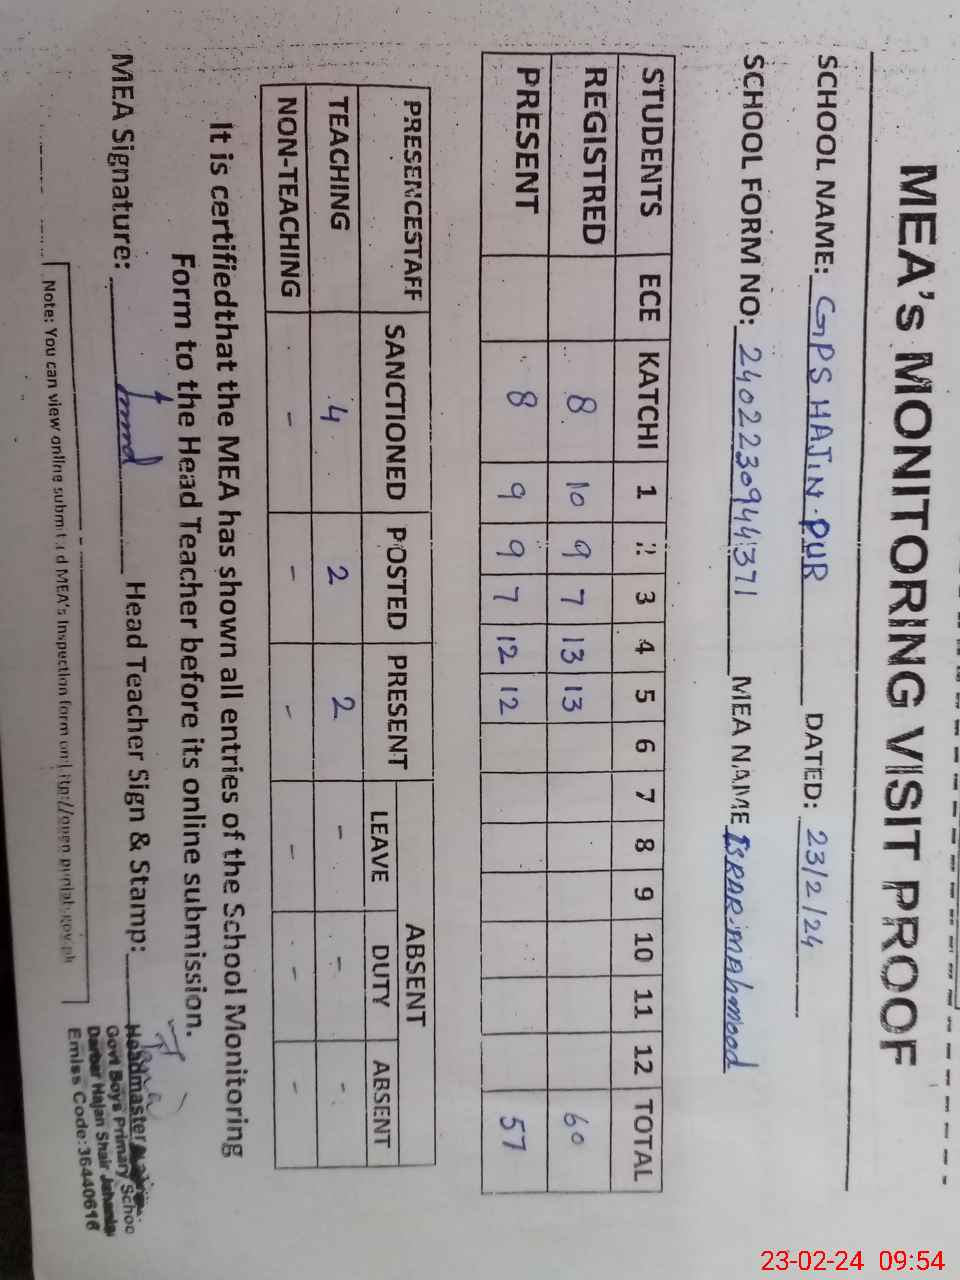 MEA's MONITORING VISIT PROOF
SCHOOL NAME: GPS HAJIN PUR DATED: 23/2/24
SCHOOL FORM NO: 2402230944371 MEA NAME ISRAR MAhmood
STUDENTS ECE KATCHI 1 2 3 4 5 6 7 8 9 10 11 12 TOTAL
REGISTRED 8 10 9 7 13 13 60
PRESENT 8 9 9 7 12 12 57
PRESENCESTAFF SANCTIONED POSTED PRESENT ABSENT
LEAVE DUTY ABSENT
TEACHING 4 2 2 - - -
NON-TEACHING - - - - - -
It is certifiedthat the MEA has shown all entries of the School Monitoring
Form to the Head Teacher before its online submission.
MEA Signature: Head Teacher Sign & Stamp:
Headmaster
Govt Boys Primary Schoo
Darbar Hajan Shair
Emiss Code:36440616
Note: You can view online submitted MEA's Inspection form on http://open.punjab.gov.pk
23-02-24 09:54